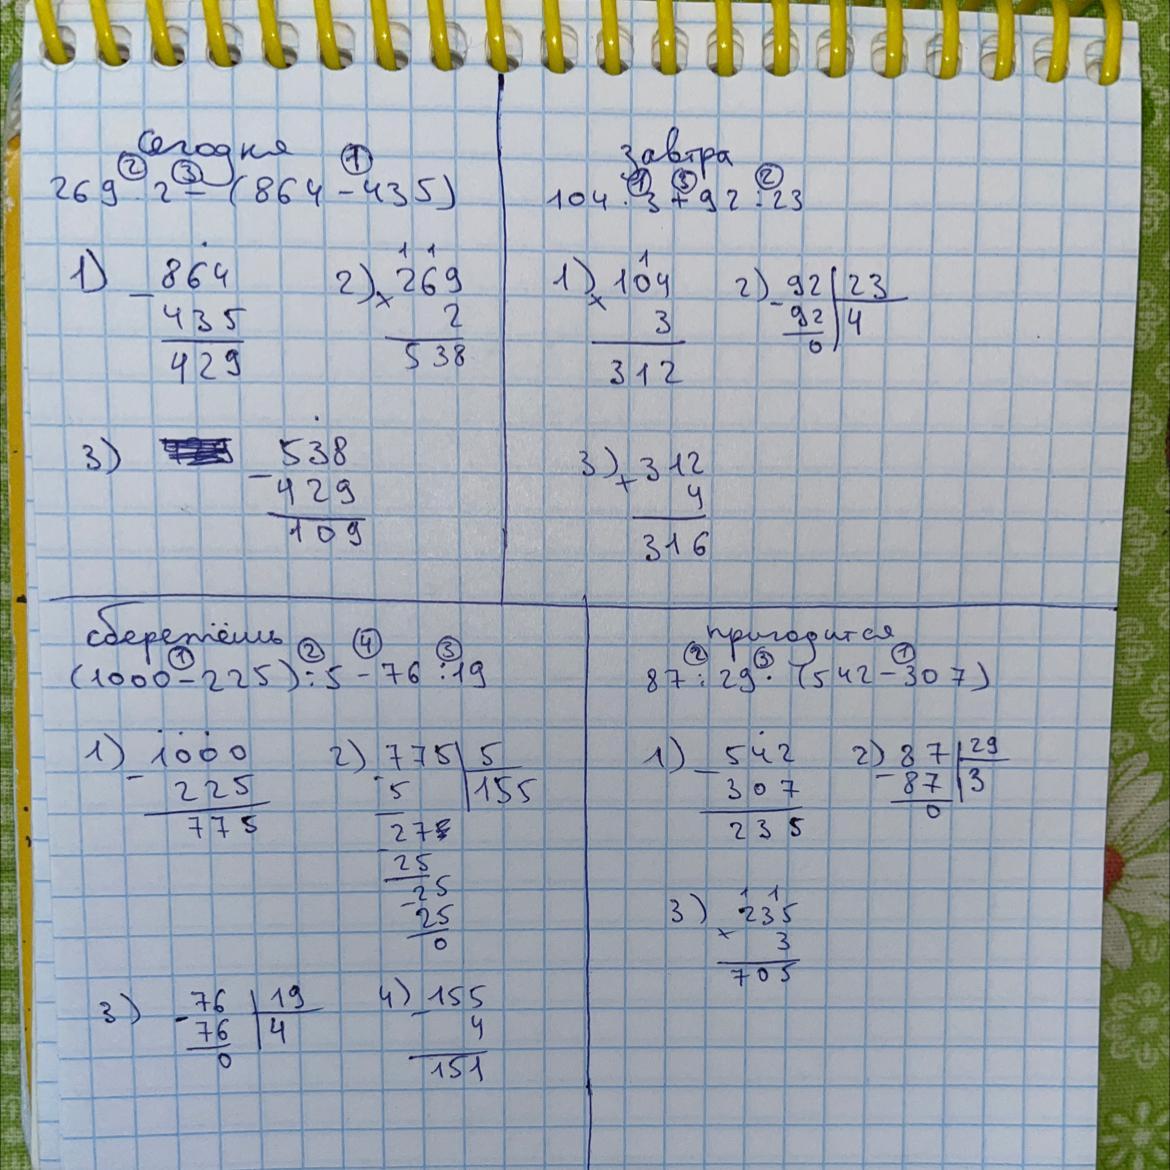 Сегодня
② ③ ①
269 · 2 − (864 − 435)
1) 864
− 435
429
2) 1 1
× 269
2
538
3) 538
− 429
109
Завтра
① ③ ②
104 · 3 + 92 : 23
1) 1
× 104
3
312
2) − 92 | 23
92 | 4
0
3) + 312
4
316
сбережёшь
① ② ④ ③
(1000 − 225) : 5 − 76 : 19
1) − 1000
225
775
2) 775 | 5
5 | 155
275
25
− 25
25
0
3) − 76 | 19
76 | 4
0
4) − 155
4
151
пригодится
② ③ ①
87 : 29 · (542 − 307)
1) − 542
307
235
2) − 87 | 29
87 | 3
0
3) 1 1
× 235
3
705